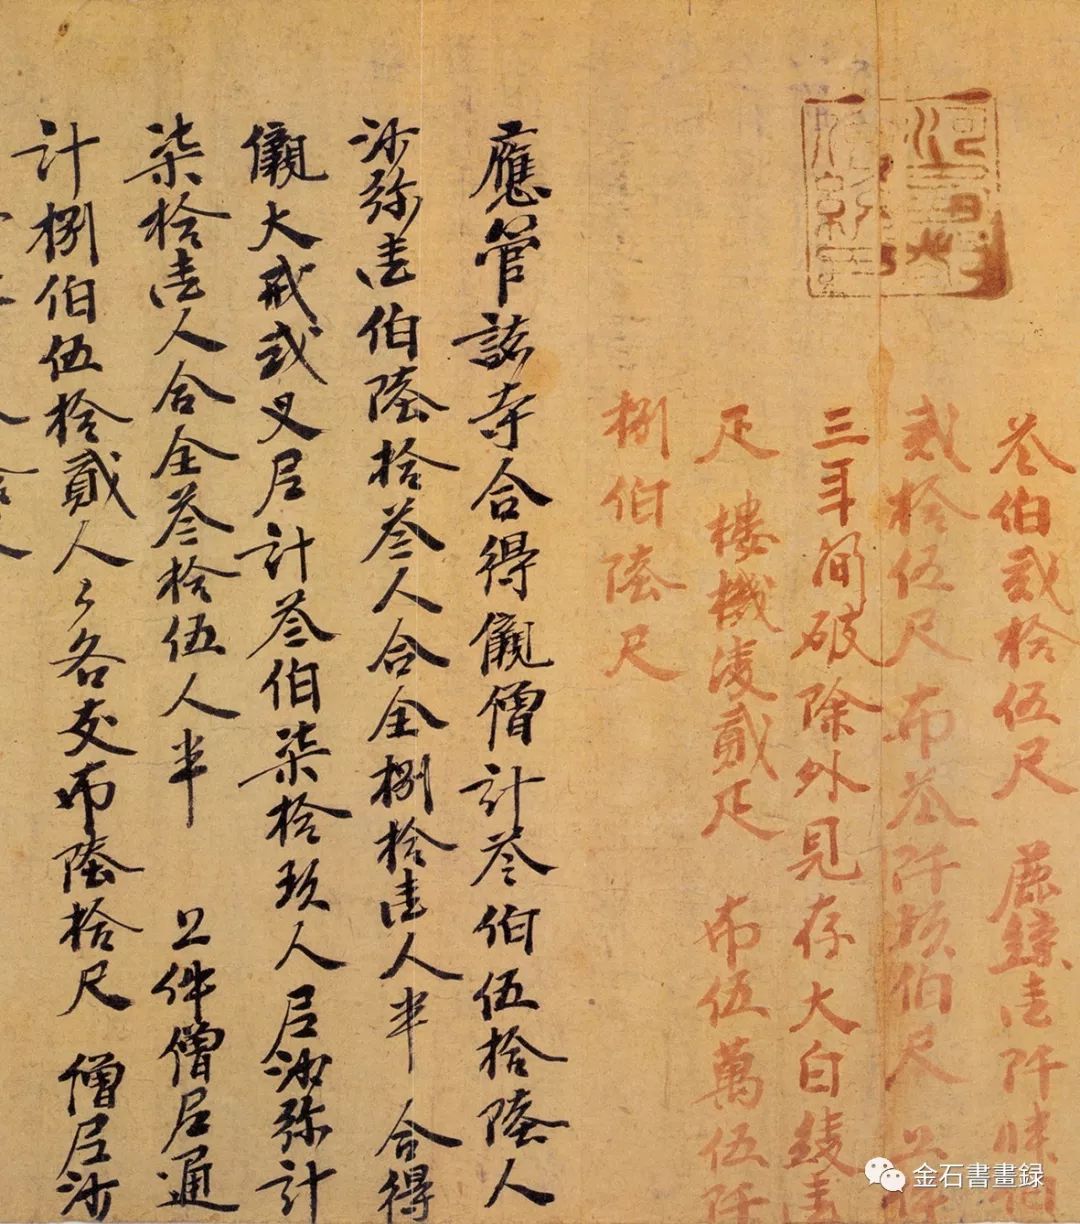 叁伯貳拾伍尺 麤緤壹阡柒伯
貳拾伍尺 布叁阡玖伯尺 上件
三年間破除外見存大白綾壹
疋 樓機綾貳疋 布伍萬伍阡
捌伯陸尺
應管諸寺合得儭僧計叁伯伍拾陸人
沙弥壹伯陸拾叁人合全捌拾壹人半 合得
儭大戒式叉尼計叁伯柒拾玖人尼沙弥計
柒拾壹人合全叁拾伍人半 上件僧尼通
計捌伯伍拾貳人々各支布陸拾尺 僧尼沙
金石書畫録